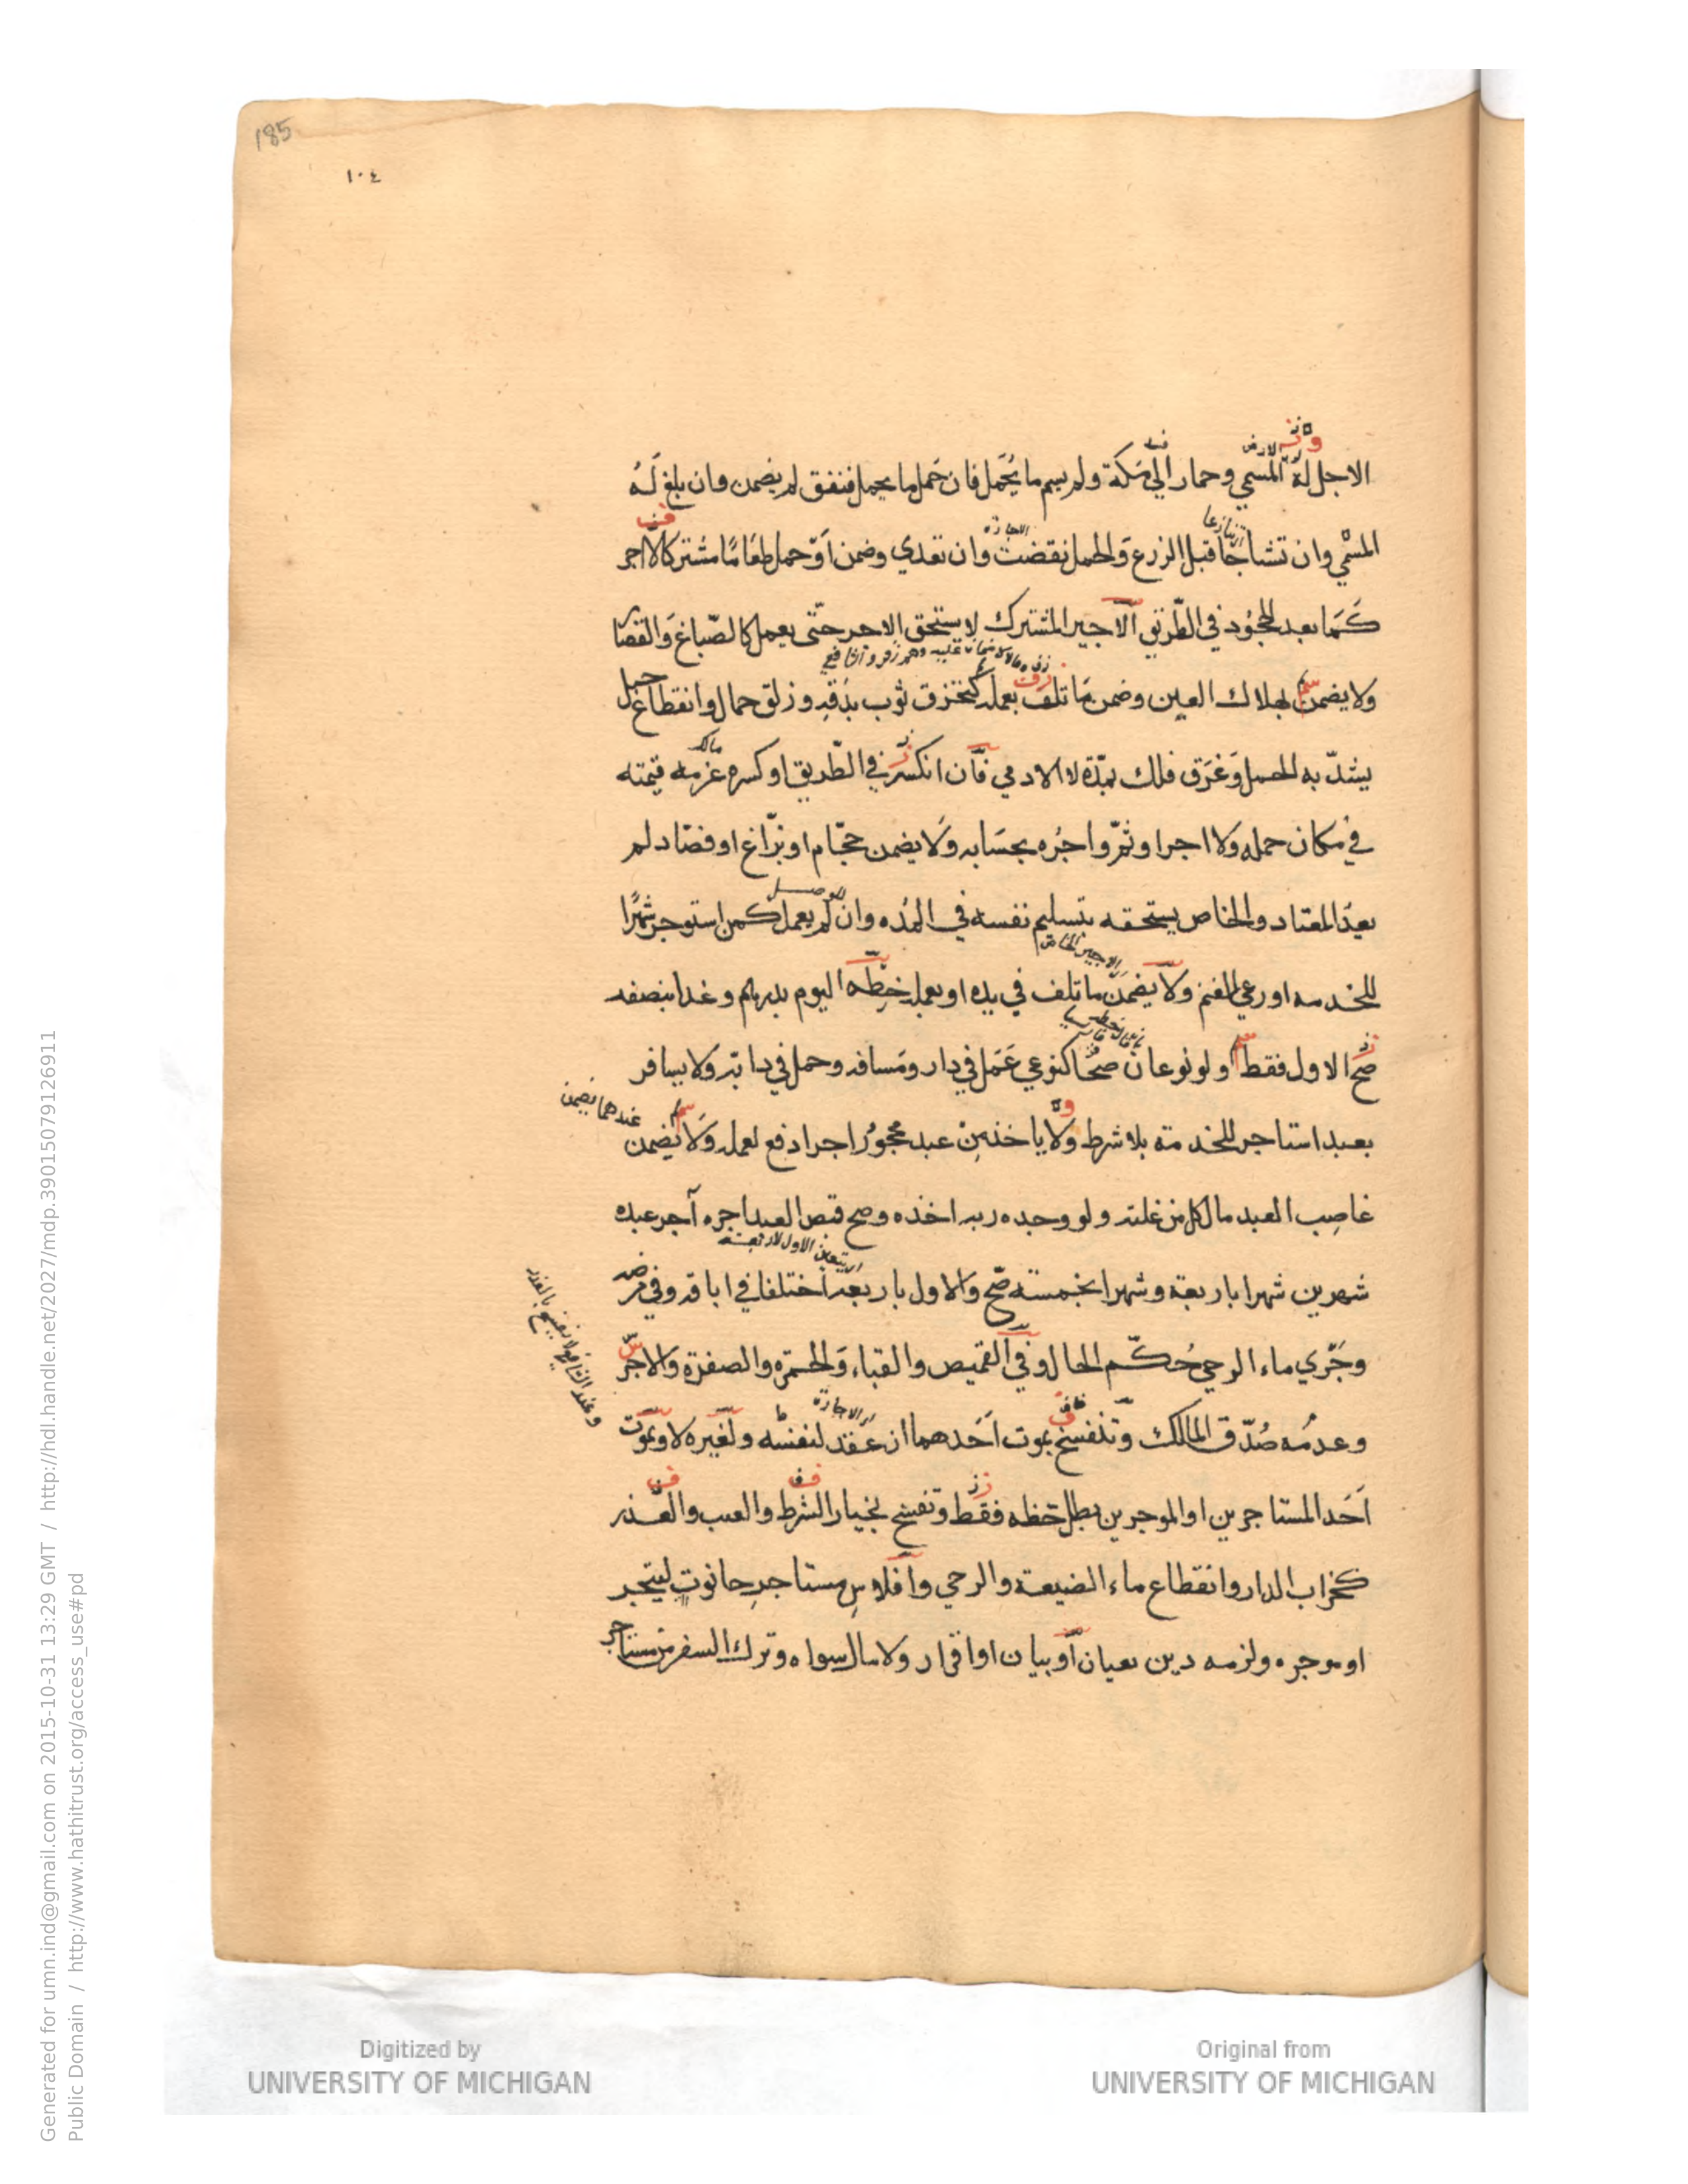 185
١٠٤
الاجل له المسمي وحمار الي مكة ولم يسم ما يحمل فان حمل ما يحمل فنفق لم يضمن وان بلغ له
المسمي وان تشاحا قبل الزرع والحمل نقضت وان تعدي وضمن او حمل طعاما مشتركا لا اجر
كما بعد الجحود في الطريق الاجير المشترك لا يستحق الاجر حتى يعمل كالصباغ والقصار
ولا يضمن لهلاك العين وضمن ما تلف بعمله كتخزق ثوب بدقه وزلق حمال وانقطاع حبل
يشد به الحمل وغرق فلك بمده لا الادمي فان انكسر في الطريق او كسره غرمه قيمته
في مكان حمله ولا اجر او ثم واجره بحسابه ولا يضمن حجام او بزاغ او فصاد لم
يعد المعتاد والخاص يستحقه بتسليم نفسه في المده وان لم يعمل كمن استوجر شهرا
للخدمه او رعي الغنم ولا يضمن ما تلف في يده او بعمله خطه اليوم بدرهم وغدا بنصفه
صح الاول فقط ولو نوعان صحا كنوعي عمل في دار ومسافه وحمل في دابه ولا يسافر
بعبد استاجر للخدمة بلا شرط ولا ياخذ من عبد محجور اجرا دفع لعمله ولا يضمن
عندهما يضمن
غاصب العبد ما اكل من غلته ولو وجده ربه اخذه وصح قبض العبد اجره آجر عبده
شهرين شهرا باربعة وشهرا بخمسة صح والاول باربعه اختلفا في اباقه وفي مرضه
وجري ماء الرحي حكم الحال وفي القميص والقباء والحمرة والصفرة والاجر
وعدمه صدق المالك وتنفسخ بموت احدهما ان عقد لنفسه ولغيره لا وبموت
احد المستاجرين او الموجرين بطل حظه فقط وتفسخ بخيار الشرط والعيب والعذر
كخراب الدار وانقطاع ماء الضيعة والرحي وافلاس مستاجر حانوت ليتجر
او موجره ولزمه دين بعيان او بيان او اقرار ولا مال سواه وترك السفر من مستاجر
Digitized by
UNIVERSITY OF MICHIGAN
Original from
UNIVERSITY OF MICHIGAN
Generated for umn.ind@gmail.com on 2015-10-31 13:29 GMT / http://hdl.handle.net/2027/mdp.39015079126911
Public Domain / http://www.hathitrust.org/access_use#pd